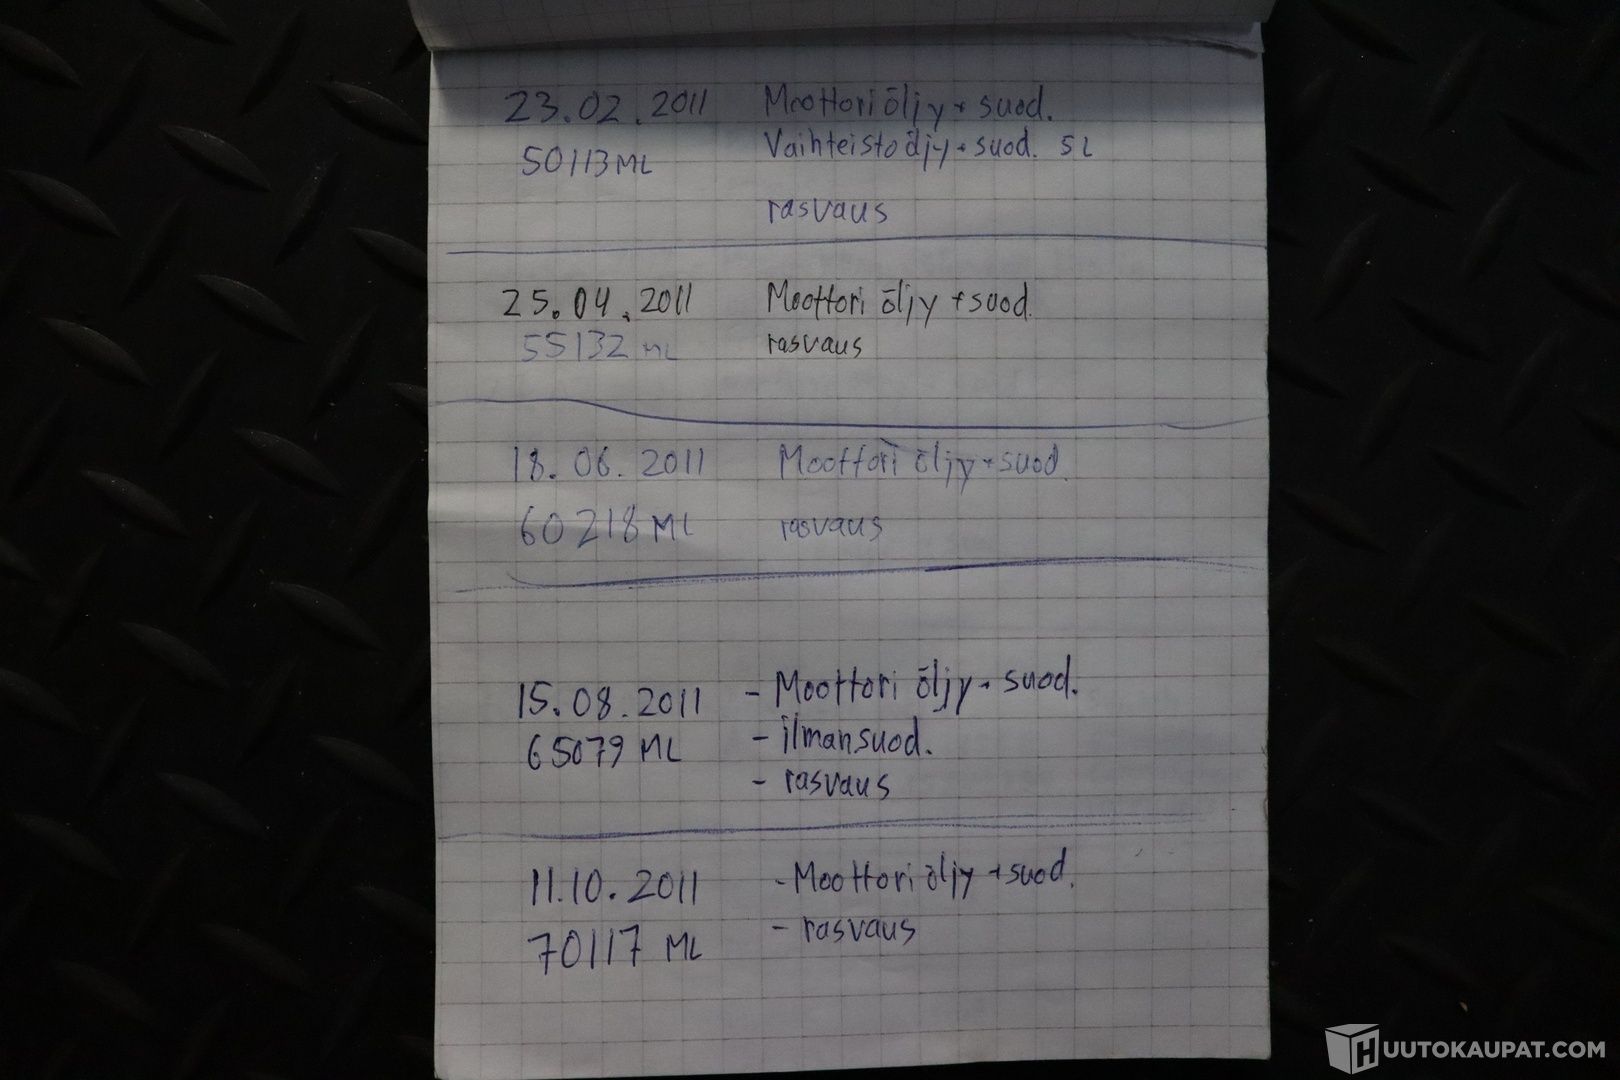 23.02.2011 Moottoriöljy + suod.
50113 ML Vaihteistoöljy + suod. 5 L
rasvaus
25.04.2011 Moottori öljy + suod.
55132 ML rasvaus
18.06.2011 Moottori öljy + suod.
60218 ML rasvaus
15.08.2011 - Moottori öljy + suod.
65079 ML - ilmansuod.
- rasvaus
11.10.2011 - Moottori öljy + suod.
70117 ML - rasvaus
HUUTOKAUPAT.COM